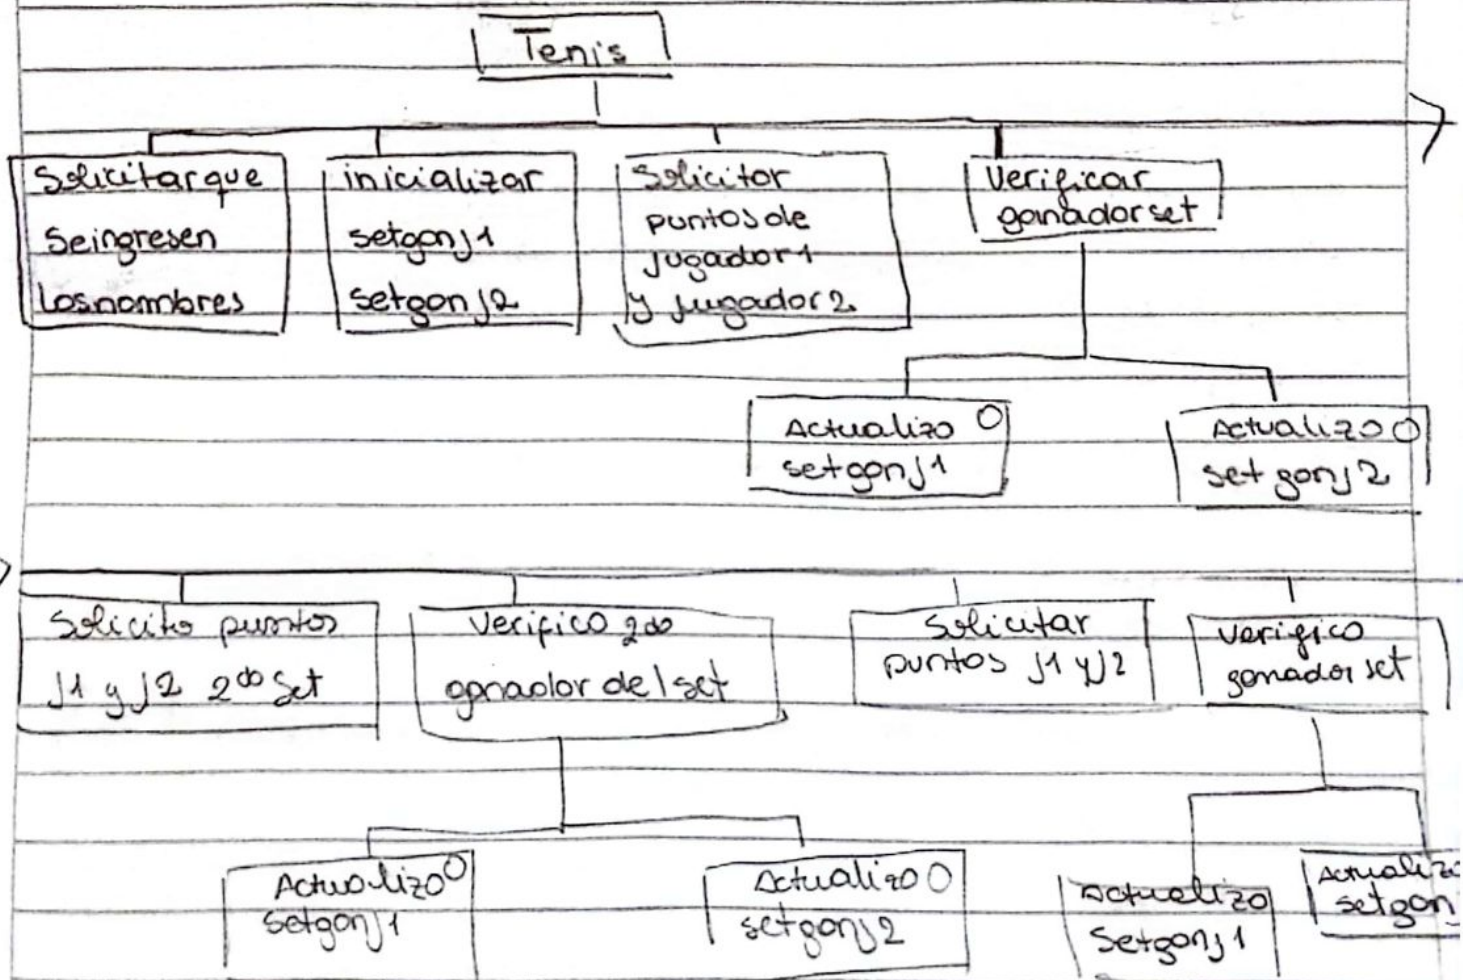 Tenis
Solicitar que
se ingresen
los nombres
inicializar
setganj1
setganj2
Solicitar
puntos de
jugador 1
y jugador 2
Verificar
ganador set
Actualizo O
setganj1
Actualizo O
set ganj2
Solicito puntos
J1 y J2 2do Set
Verifico 2do
ganador del set
Solicitar
puntos J1 y J2
verifico
ganador set
Actualizo O
setganj1
Actualizo O
setganj2
Actualizo
Setganj1
Actualizo
setgan